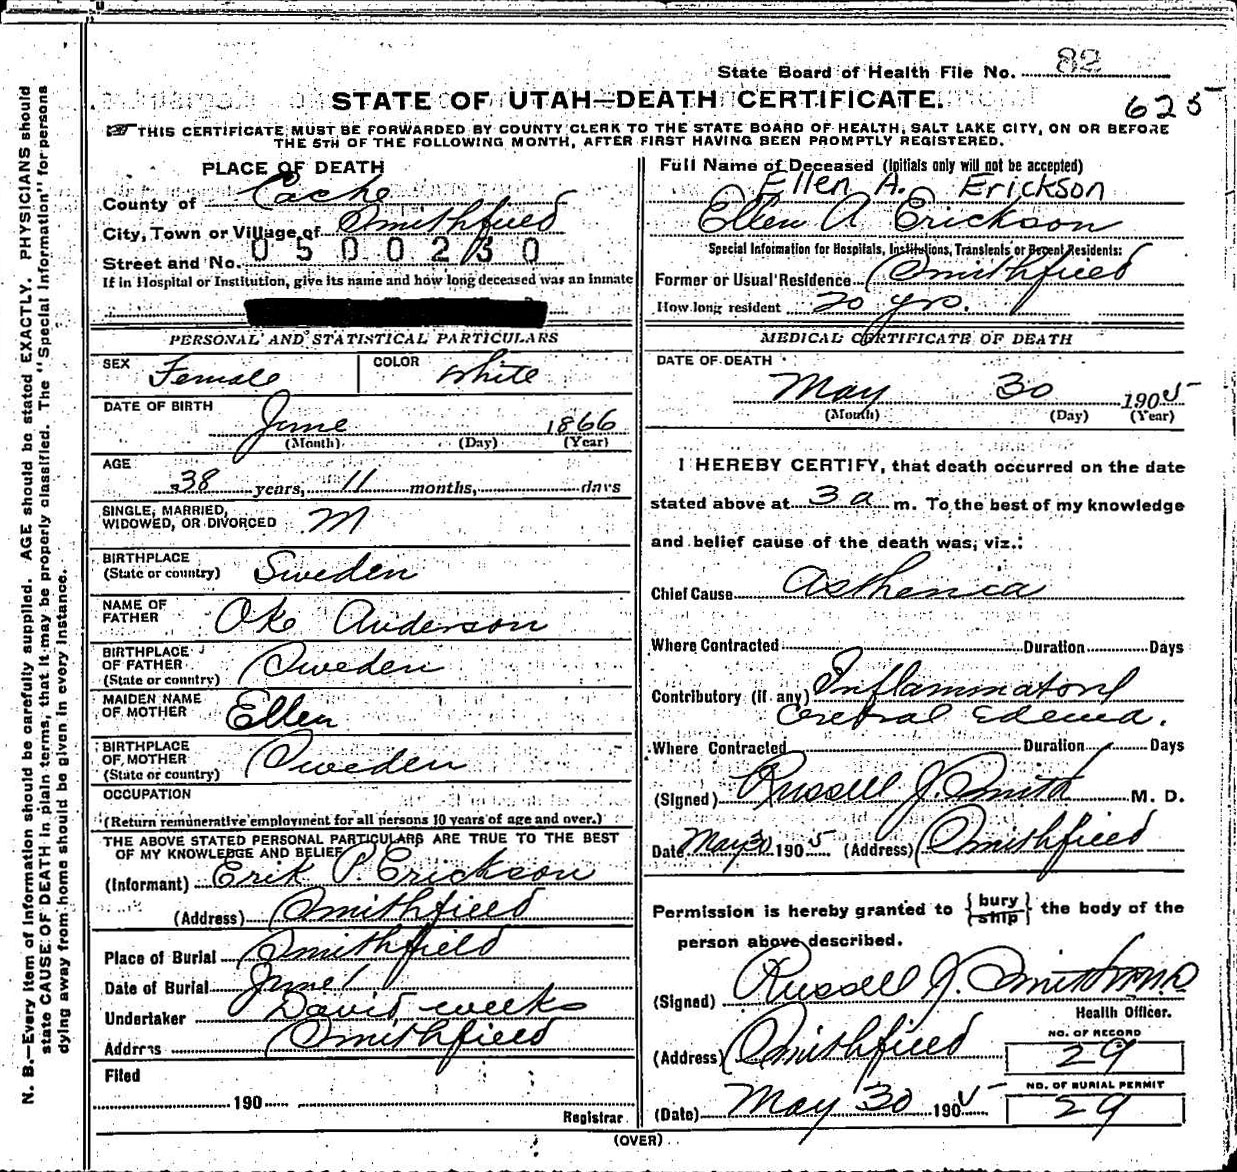 State Board of Health File No. 82
STATE OF UTAH—DEATH CERTIFICATE.
625
THIS CERTIFICATE MUST BE FORWARDED BY COUNTY CLERK TO THE STATE BOARD OF HEALTH, SALT LAKE CITY, ON OR BEFORE
THE 5TH OF THE FOLLOWING MONTH, AFTER FIRST HAVING BEEN PROMPTLY REGISTERED.
PLACE OF DEATH
County of Cache
City, Town or Village of Smithfield
Street and No. 0500230
If in Hospital or Institution, give its name and how long deceased was an inmate
PERSONAL AND STATISTICAL PARTICULARS
SEX Female COLOR White
DATE OF BIRTH
June 1866
(Month) (Day) (Year)
AGE
38 years, 11 months, days
SINGLE, MARRIED,
WIDOWED, OR DIVORCED M
BIRTHPLACE
(State or country) Sweden
NAME OF
FATHER Oke Anderson
BIRTHPLACE
OF FATHER
(State or country) Sweden
MAIDEN NAME
OF MOTHER Ellen
BIRTHPLACE
OF MOTHER
(State or country) Sweden
OCCUPATION
(Return remunerative employment for all persons 10 years of age and over.)
THE ABOVE STATED PERSONAL PARTICULARS ARE TRUE TO THE BEST
OF MY KNOWLEDGE AND BELIEF
(Informant) Erik P. Erickson
(Address) Smithfield
Place of Burial Smithfield
Date of Burial June 1
Undertaker David weeks
Address Smithfield
Filed
190
Registrar
Full Name of Deceased (Initials only will not be accepted)
Ellen A. Erickson
Ellen A Erickson
Special Information for Hospitals, Institutions, Transients or Recent Residents:
Former or Usual Residence Smithfield
How long resident 20 yrs.
MEDICAL CERTIFICATE OF DEATH
DATE OF DEATH
May 30 1905
(Month) (Day) (Year)
I HEREBY CERTIFY, that death occurred on the date
stated above at 3 a m. To the best of my knowledge
and belief cause of the death was, viz.:
Chief Cause Asthenica
Where Contracted Duration Days
Contributory (if any) Inflammatory
Cerebral Edema.
Where Contracted Duration Days
(Signed) Russell J. Smith M. D.
Date May 30 1905 (Address) Smithfield
Permission is hereby granted to {bury ship} the body of the
person above described.
(Signed) Russell J.
Health Officer.
(Address) Smithfield
NO. OF RECORD
29
NO. OF BURIAL PERMIT
29
(Date) May 30 1905
(OVER)
N. B.—Every item of information should be carefully supplied. AGE should be stated EXACTLY. PHYSICIANS should
state CAUSE OF DEATH in plain terms, that it may be properly classified. The "Special Information" for persons
dying away from home should be given in every instance.